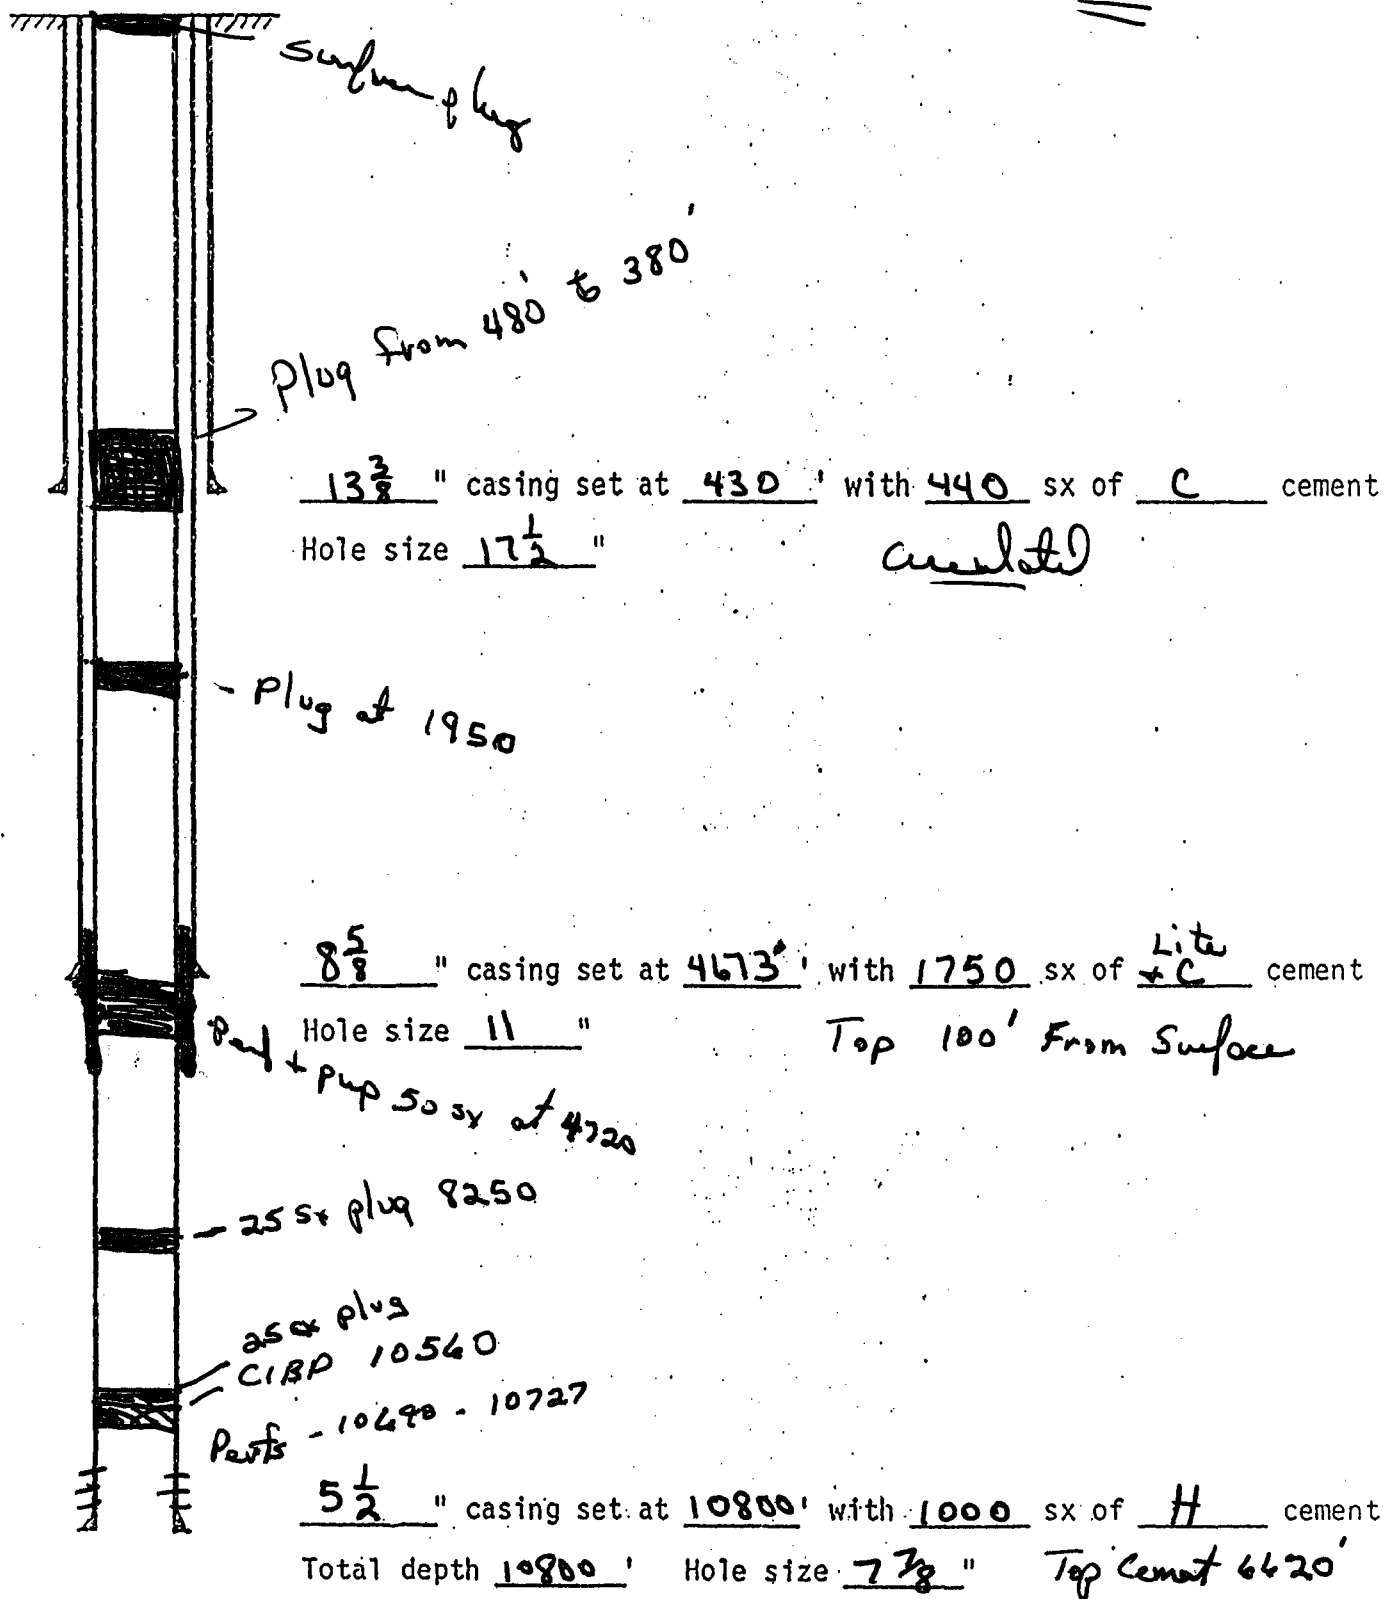 Surface plug
Plug from 480' to 380'
13 3/8 " casing set at 430 ' with 440 sx of C cement
Hole size 17 1/2 "
Circulated
- Plug at 1950
8 5/8 " casing set at 4673' ' with 1750 sx of Lite + C cement
Hole size 11 "
Top 100' From Surface
Perf + pmp 50 sx at 4720
- 25 sx plug 8250
25 sx plug
CIBP 10560
Perfs - 10690 - 10727
5 1/2 " casing set at 10800' with 1000 sx of H cement
Total depth 10800 ' Hole size 7 7/8 " Top Cement 6620'